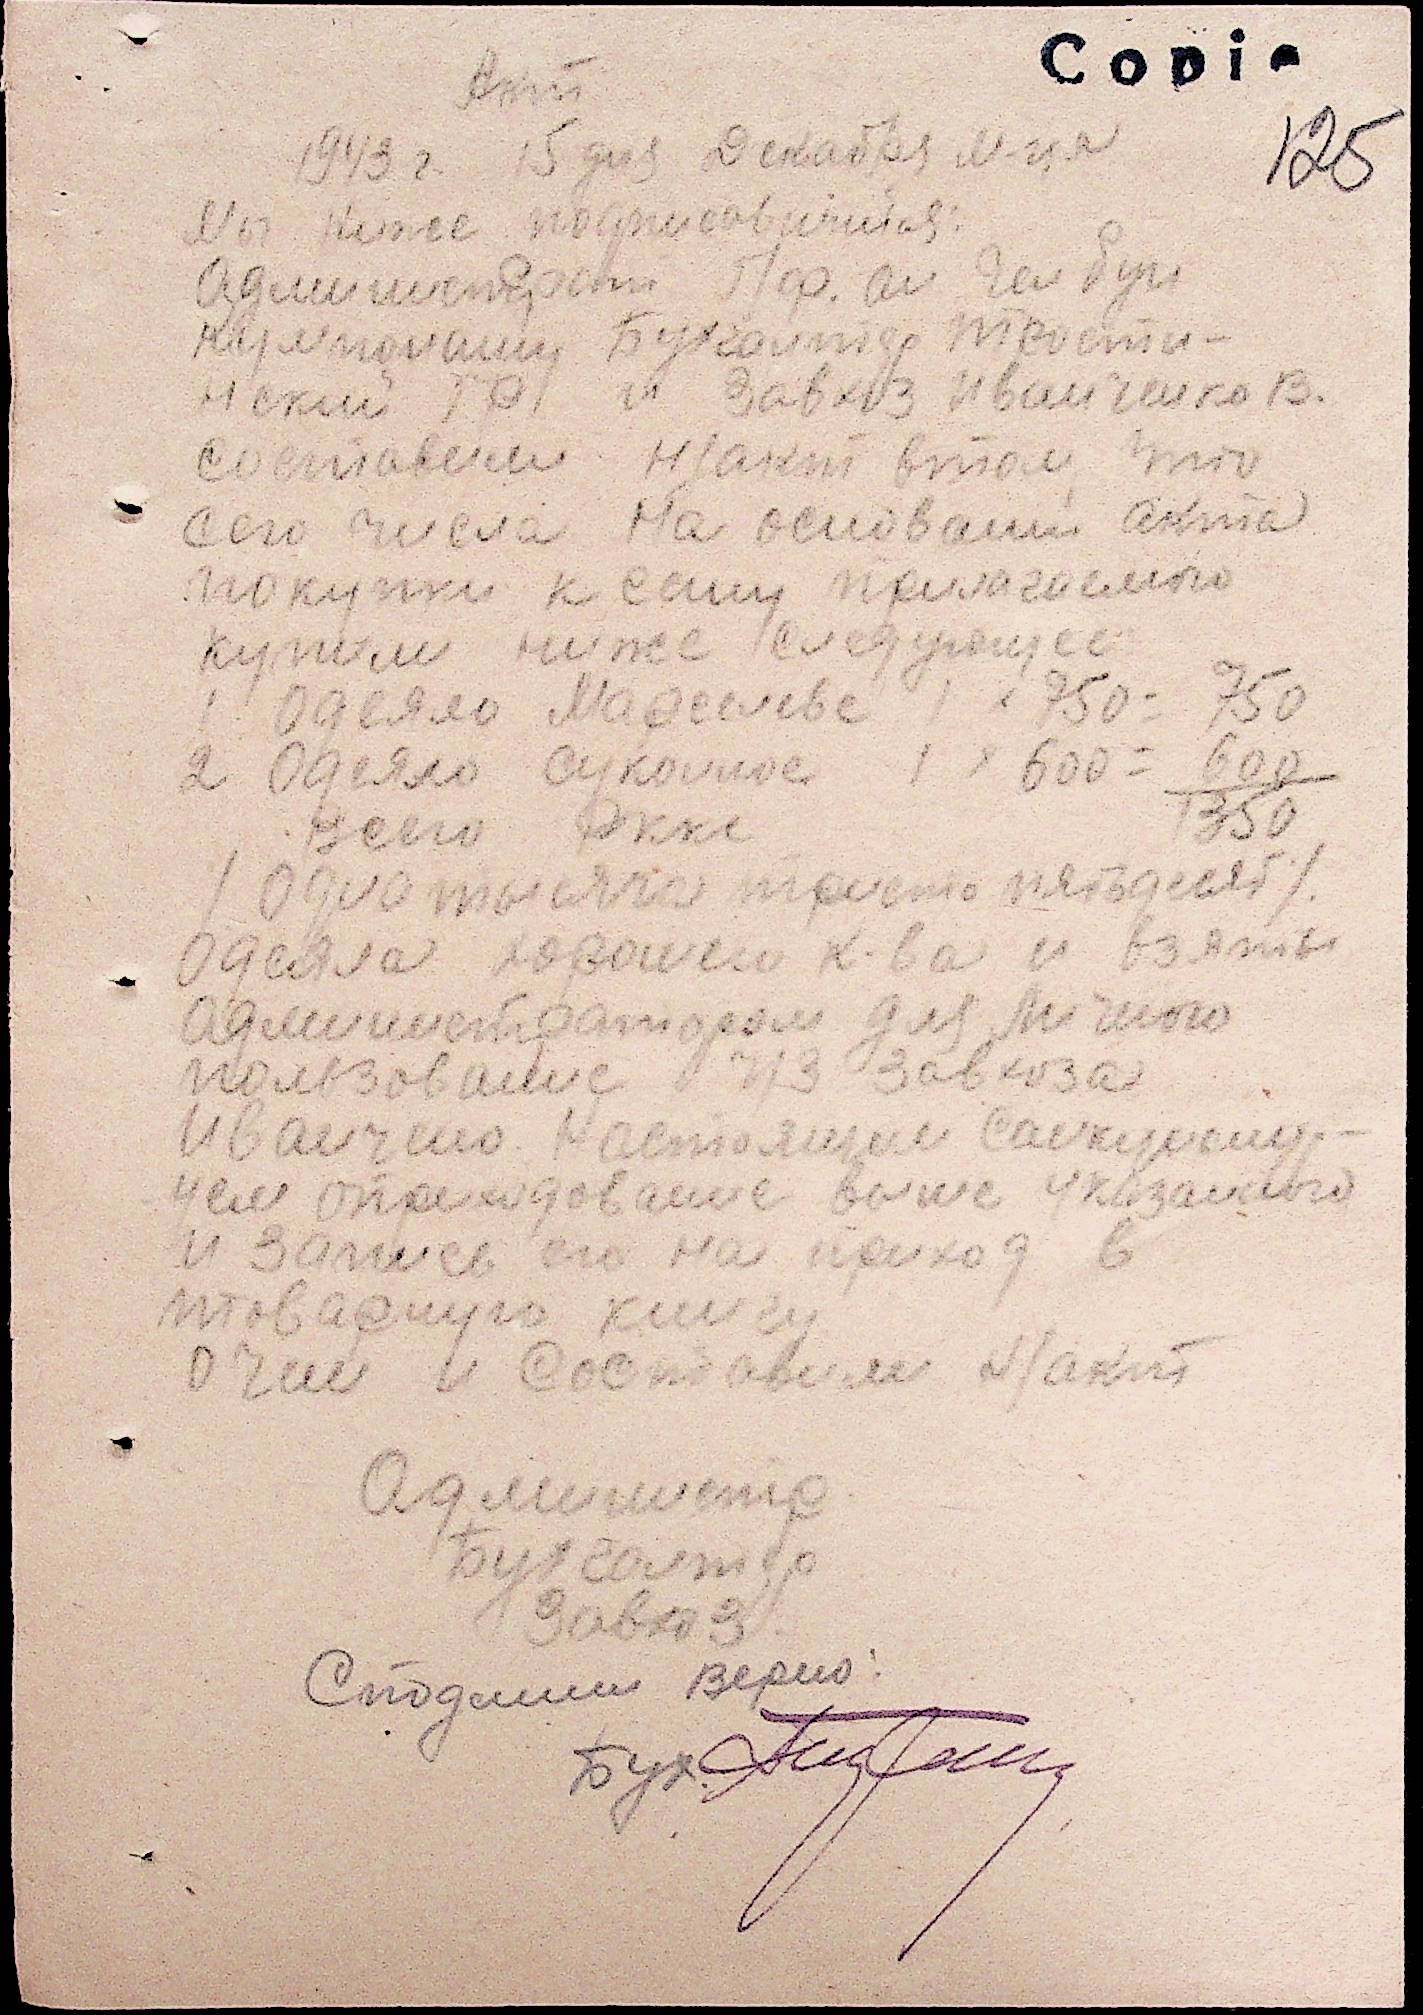 Copie
125
Акт
1943 г. 15 дня Декабря м-ця
Мы ниже подписавшися:
Администрат
Бухгалтер
и Завхоз Иванченко В.
составили н/акт втом, что
сего числа на основании акта
покупки к сему прилагаемого
купили ниже следующее
1 Одеяло 1 × 750 = 750
2 Одеяло суконное 1 × 600 = 600
Всего Ркке 1350
/ Одна тысяча триста пятьдесят /.
Одеяла хорошего к-ва и взяты
администратором для личного
пользование из завхоза
Иванчено. Настоящим
чем оприходование выше указанного
и запись его на приход в
товарную книгу
о чем и составили н/акт
Администр
Бухгалтер
Завхоз
Сподлиним верно:
Бух.